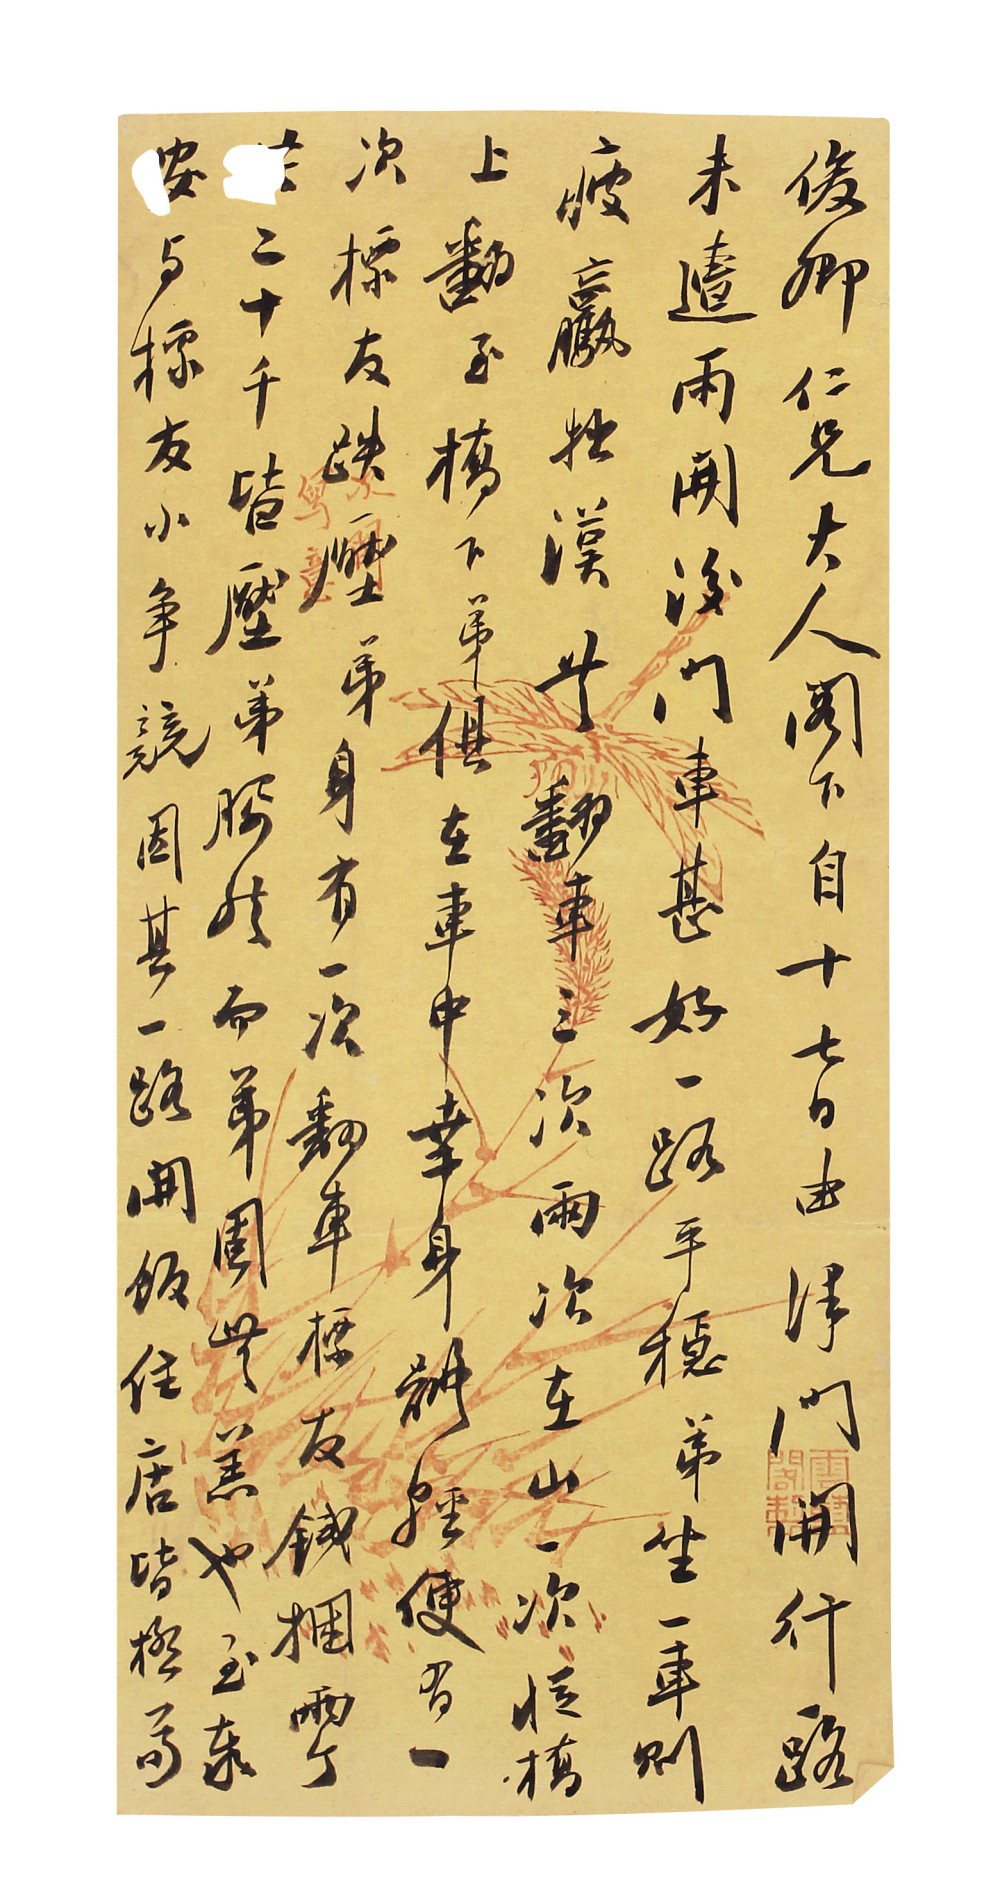 俊卿仁兄大人閣下自十七日由津門開行路
未遭雨開後門車甚好一路平穩弟坐一車則
疲羸拙漢共翻車三次兩次在山一次從橋
上翻至橋下弟俱在車中幸身體輕便有一
次標友跌壓弟身有一次翻車標友錢捆兩个
共二十千皆壓弟腳然而弟固無恙也至泰
安與標友小爭競因其一路開飯住店皆極苟